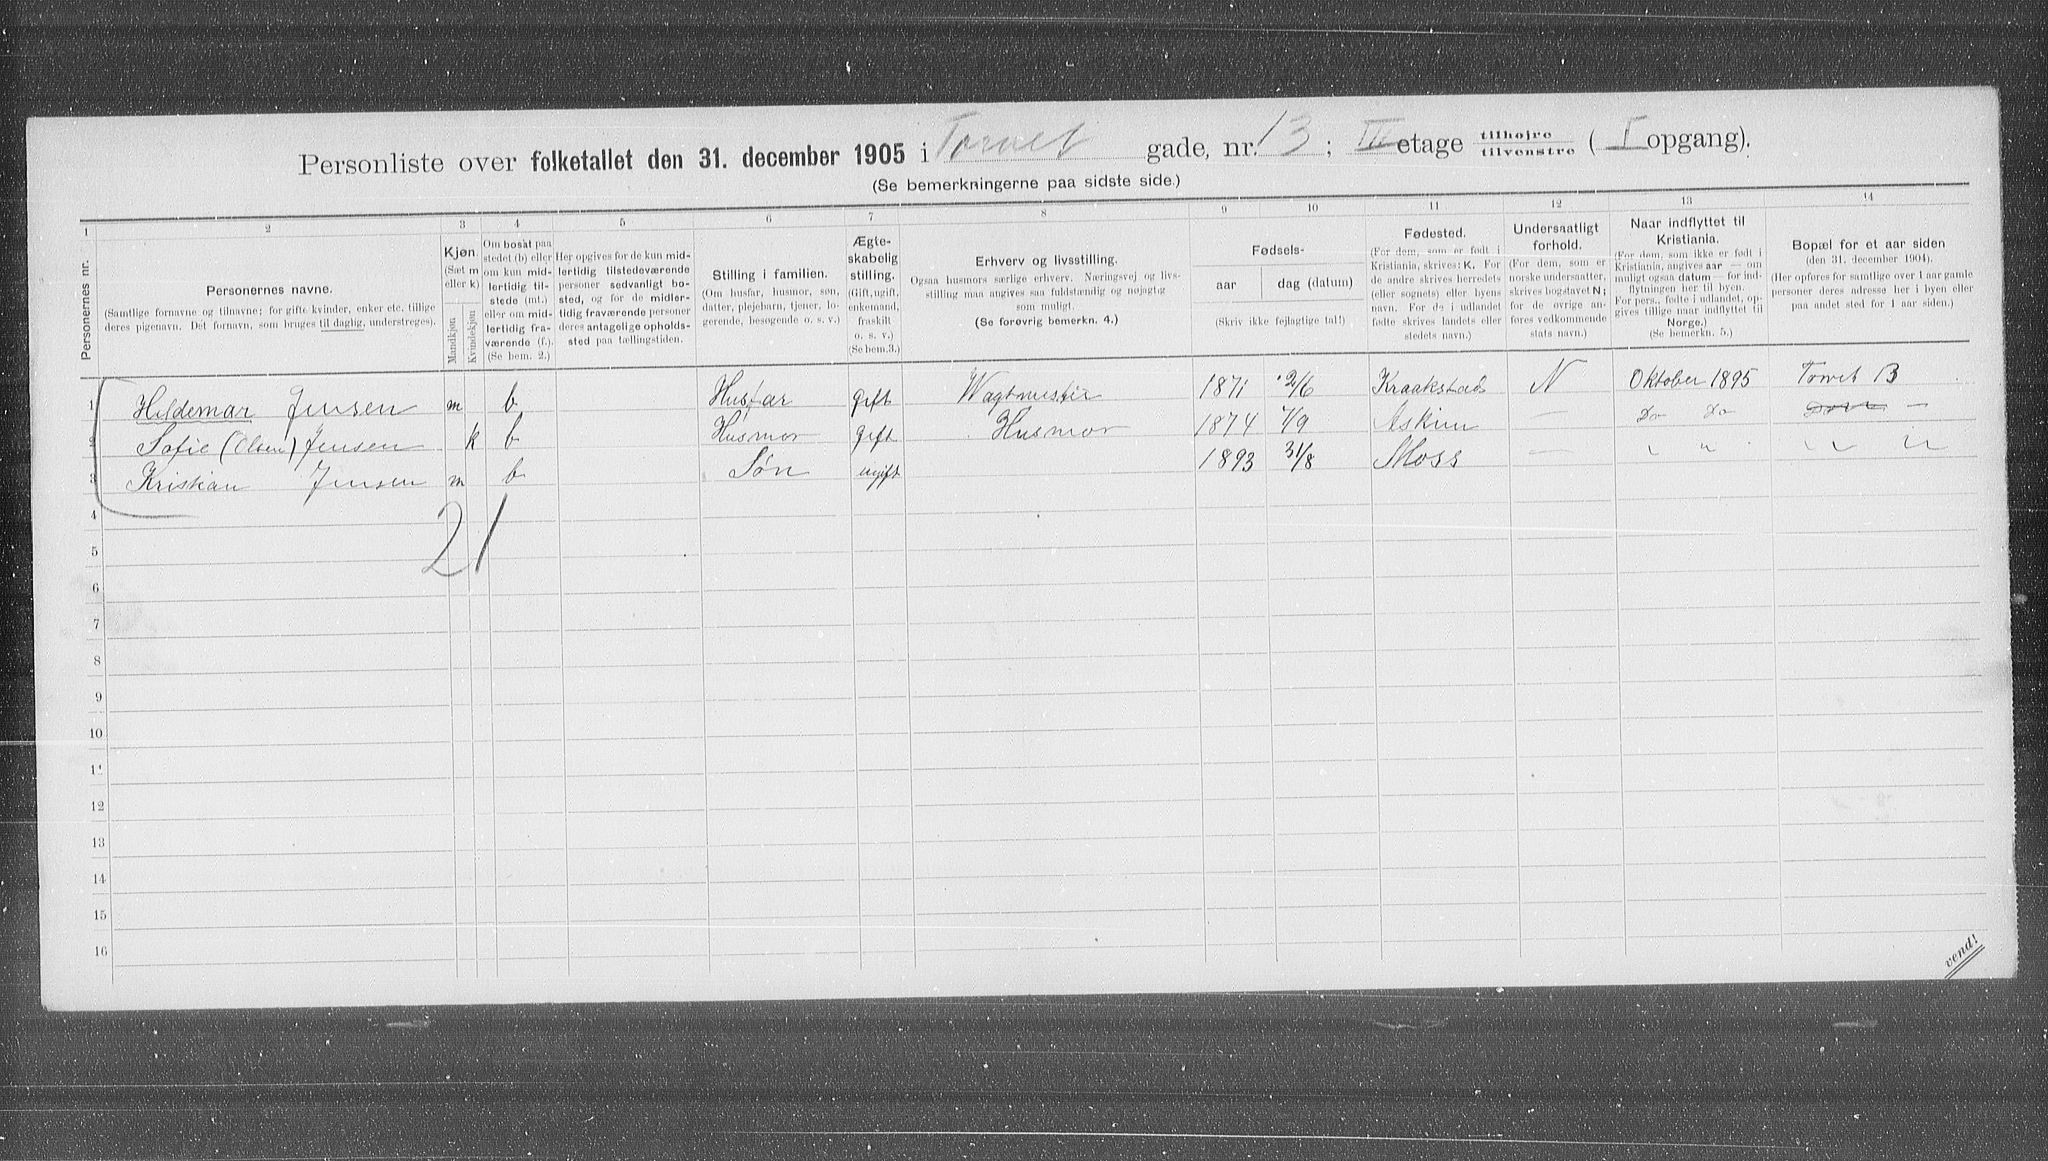 Personliste over folketallet den 31. december 1905 i Torvet gade, nr. 13; III etage tilhøjre tilvenstre (I opgang).
(Se bemerkningerne paa sidste side.)
1 2 3 4 5 6 7 8 9 10 11 12 13 14
Personernes nr.
Personernes navne.
(Samtlige fornavne og tilnavne; for gifte kvinder, enker etc. tillige deres pigenavn. Det fornavn, som bruges til daglig, understreges).
Kjøn.
(Sæt m eller k)
Mandkjøn Kvindekjøn
Om bosat paa stedet (b) eller om kun midlertidig tilstede (mt.) eller om midlertidig fraværende (f.). (Se bem. 2.)
Her opgives for de kun midlertidig tilstedeværende personer sedvanligt bosted, og for de midlertidig fraværende personer deres antagelige opholdssted paa tællingstiden.
Stilling i familien.
(Om husfar, husmor, søn, datter, plejebarn, tjener, logerende, besøgende o. s. v.)
Ægteskabelig stilling.
(Gift, ugift, enkemand, fraskilt o. s. v.) (Se bem.3.)
Erhverv og livsstilling.
Ogsaa husmors særlige erhverv. Næringsvej og livsstilling man angives saa fuldstændig og nøjagtig som muligt.
(Se forøvrig bemerkn. 4.)
Fødsels-
aar dag (datum)
(Skriv ikke fejlagtige tal!)
Fødested.
(For dem, som er født i Kristiania, skrives: K. For de andre skrives herredets (eller sognets) eller byens navn. For de i udlandet fødte skrives landets eller stedets navn.)
Undersaatligt forhold.
(For dem, som er norske undersaatter, skrives bogstavet N; for de øvrige anføres vedkommende stats navn.)
Naar indflyttet til Kristiania.
(For dem, som ikke er født i Kristiania, angives aar — om muligt ogsaa datum — for indflytningen her til byen. For pers., fødte i udlandet, opgives tillige naar indflyttet til Norge.)
(Se bemerkn. 5.)
Bopæl for et aar siden
(den 31. december 1904).
(Her opføres for samtlige over 1 aar gamle personer deres adresse her i byen eller paa andet sted for 1 aar siden.)
1 Hildemar Jensen m b Husfar gift Wagtmester 1871 12/6 Kraakstad N Oktober 1895 Torvet 13
2 Sofie (Olsen) Jensen k b Husmor gift Husmor 1874 7/9 Askim — Do Do —
3 Kristian Jensen m b Søn ugift 1893 31/8 Moss — " " " "
4
2 1
5
6
7
8
9
10
11
12
13
14
15
16
vend!